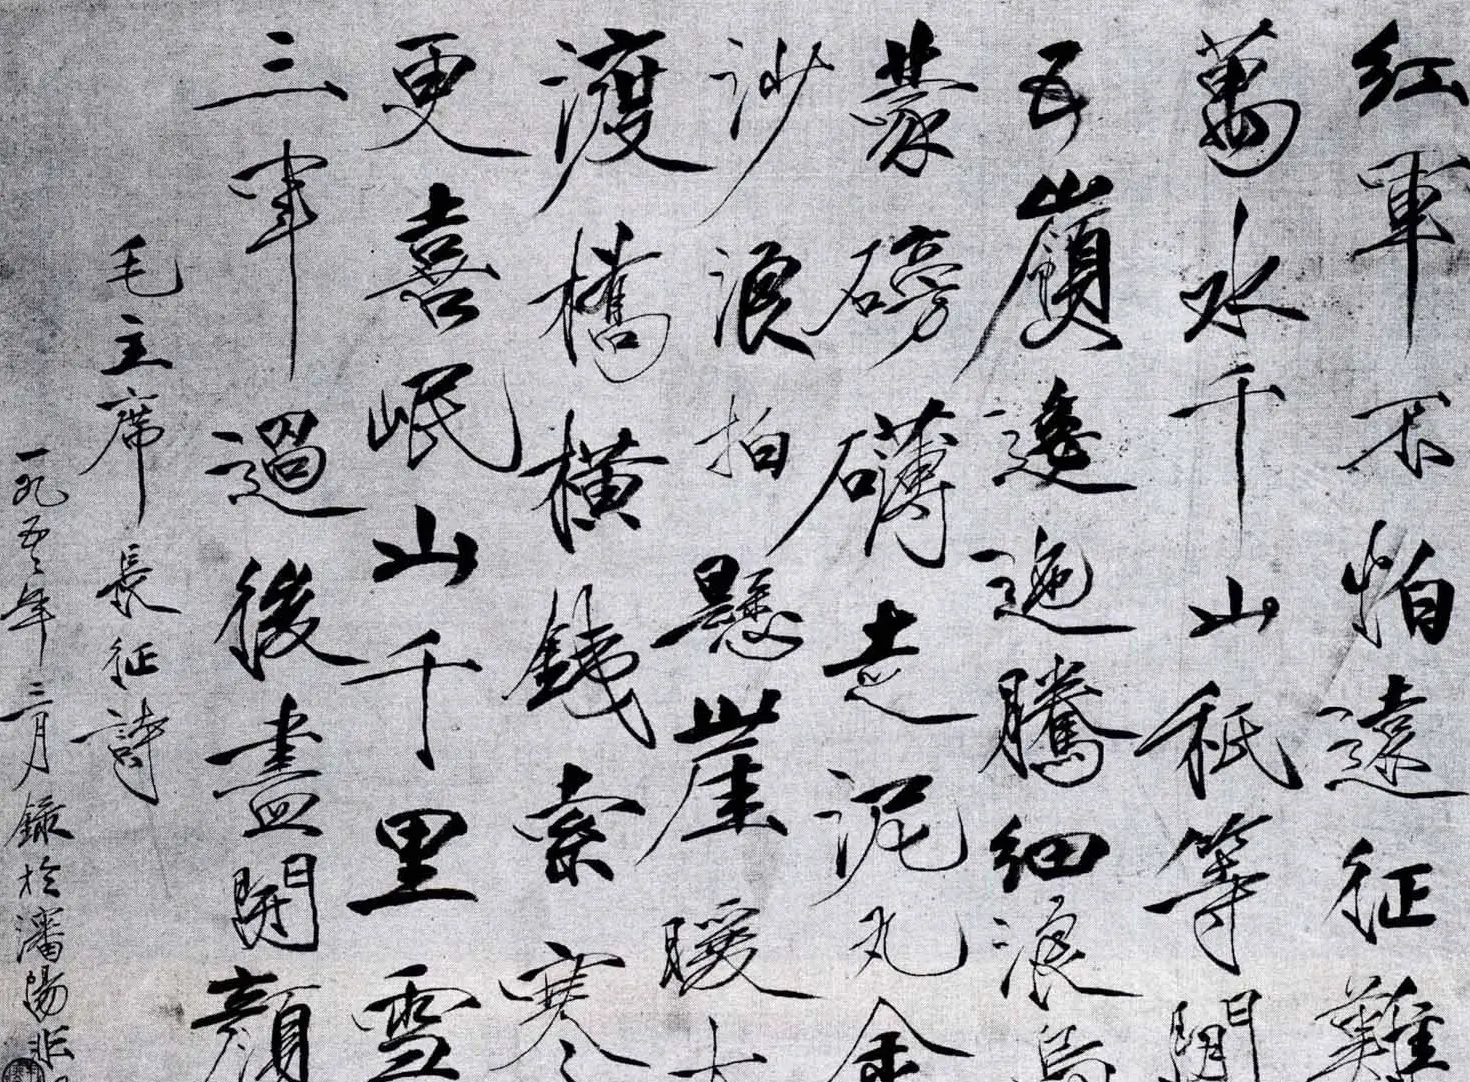 紅軍不怕遠征難
萬水千山祇等閒
五嶺逶迤騰細浪烏
蒙磅礴走泥丸金
沙浪拍懸崖暖大
渡橋橫鐵索寒
更喜岷山千里雪
三軍過後盡開顏
毛主席長征詩
一九五三年三月錄於瀋陽